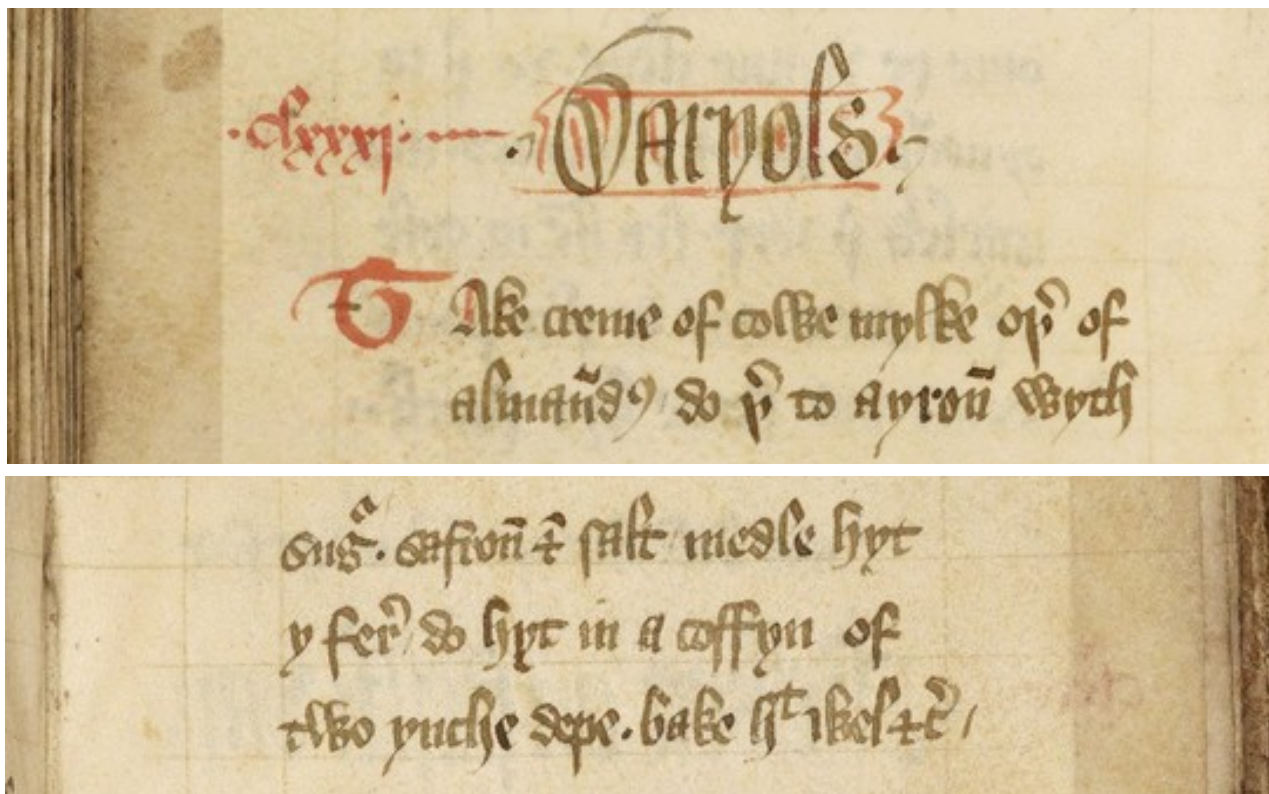 .clxxxj. Daryols.
TAke creme of cowe mylke oþ̉ of
almaūdꝯ do þ̉ to ayron̄ wyth
sugᵃ. safron̄ ⁊ salt medle hyt
y fer̉ do hyt in a coffyn of
two ynche depe. bake hᵗ wel ⁊c̉